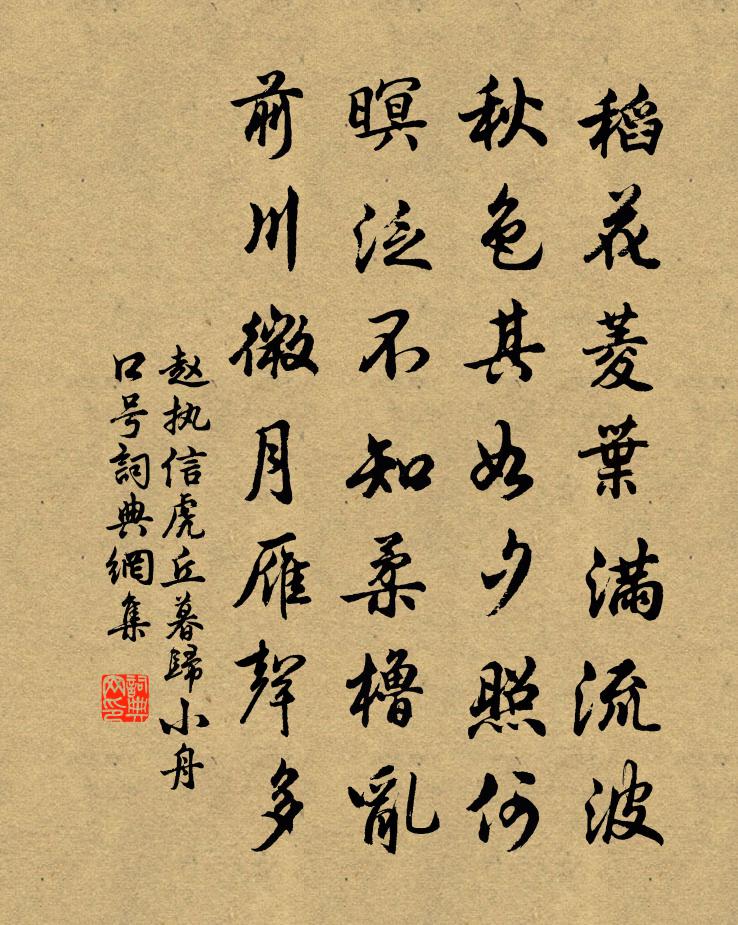 稻花菱葉滿流波
秋色其如夕照何
暝泛不知柔櫓亂
前川微月雁聲多
赵执信虎丘暮歸小舟
口号詞典網集
詞典